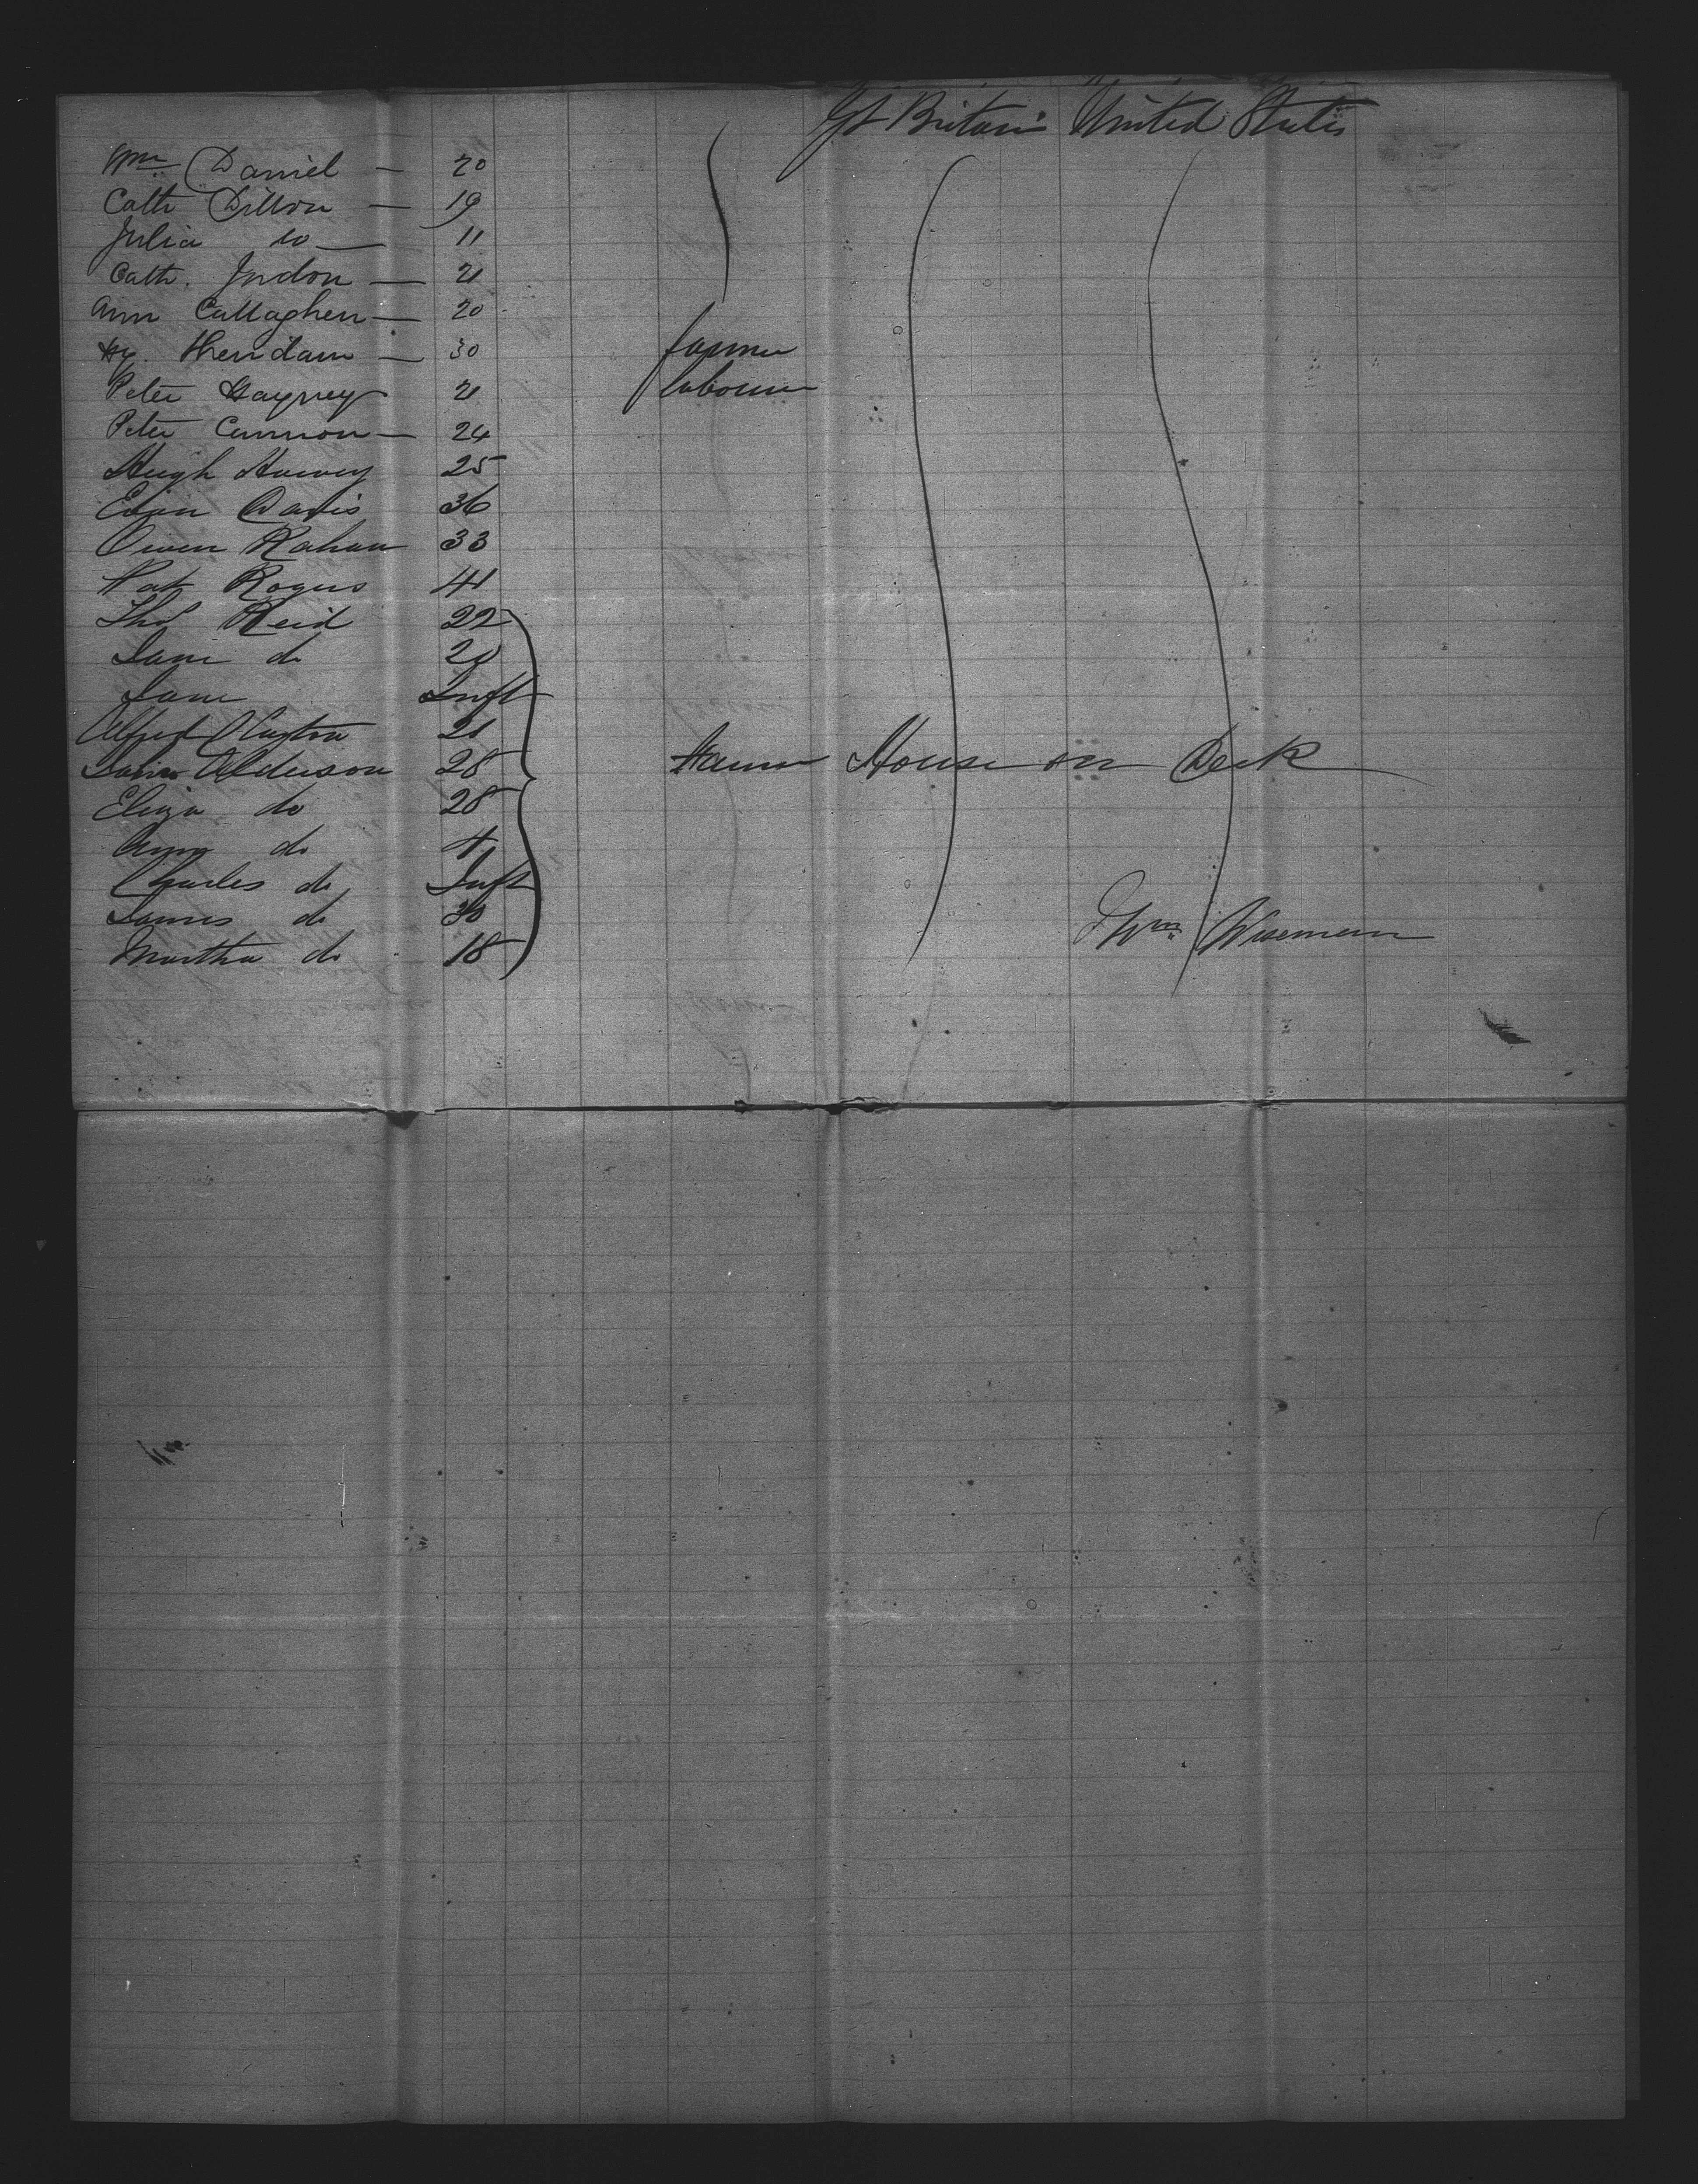 Gt Britain United States
Wm Daniel — 20
Cath Dillon — 19
Julia do — 11
Cath. Jndon — 21
Ann Callaghen — 20
Hy. Sheridan — 30 farmer
Peter 21 labourer
Peter Cannon — 24
Hugh Harvey 25
Evan Davis 36
Owen Kahan 33
Pat Rogers 41
Thos Reid 22
Jane do 20
Jane Inft
Alfred Clayton 21
Alderson 28 House on Deck
Eliza do 28
Ann do 4
Charles do Inft
James do 30 Wm Wiseman
Martha do 18